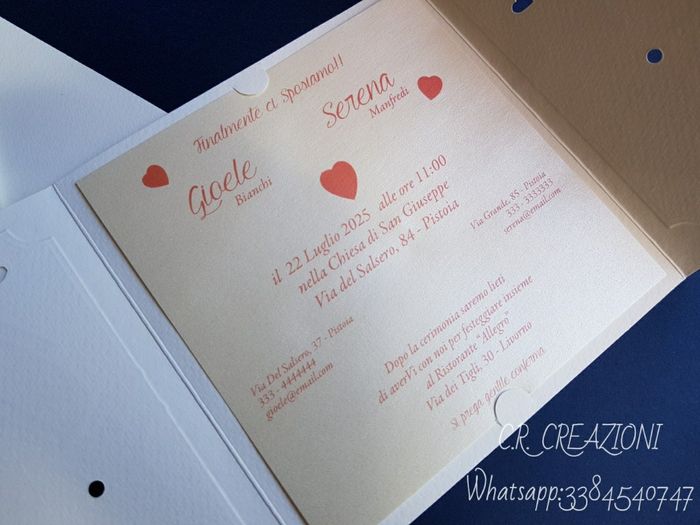 Finalmente ci sposiamo!!
Gioele
Bianchi
Serena
Manfredi
il 22 Luglio 2025 alle ore 11:00
nella Chiesa di San Giuseppe
Via del Salsero, 84 - Pistoia
Via Del Salsero, 37 - Pistoia
333 - 4444444
gioele@email.com
Via Grande, 85 - Pistoia
333 - 3333333
serena@email.com
Dopo la cerimonia saremo lieti
di averVi con noi per festeggiare insieme
al Ristorante "Allegro"
Via dei Tigli, 30 - Livorno
Si prega gentile conferma
C.R. CREAZIONI
Whatsapp:3384540747